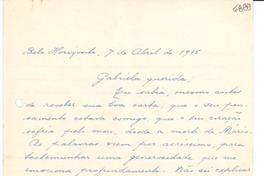 6899
Belo Horizonte, 7 de Abril de 1945
Gabriela querida,
Eu sabia, mesmo antes
de receber sua boa carta, que o seu pen-
samento estava comigo, que seu coração
sofria pelo meu, desde a morte de Mario.
As palavras vieram por acréscimo, para
testemunhar uma generosidade que me
emociona profundamente. Não sei explicar